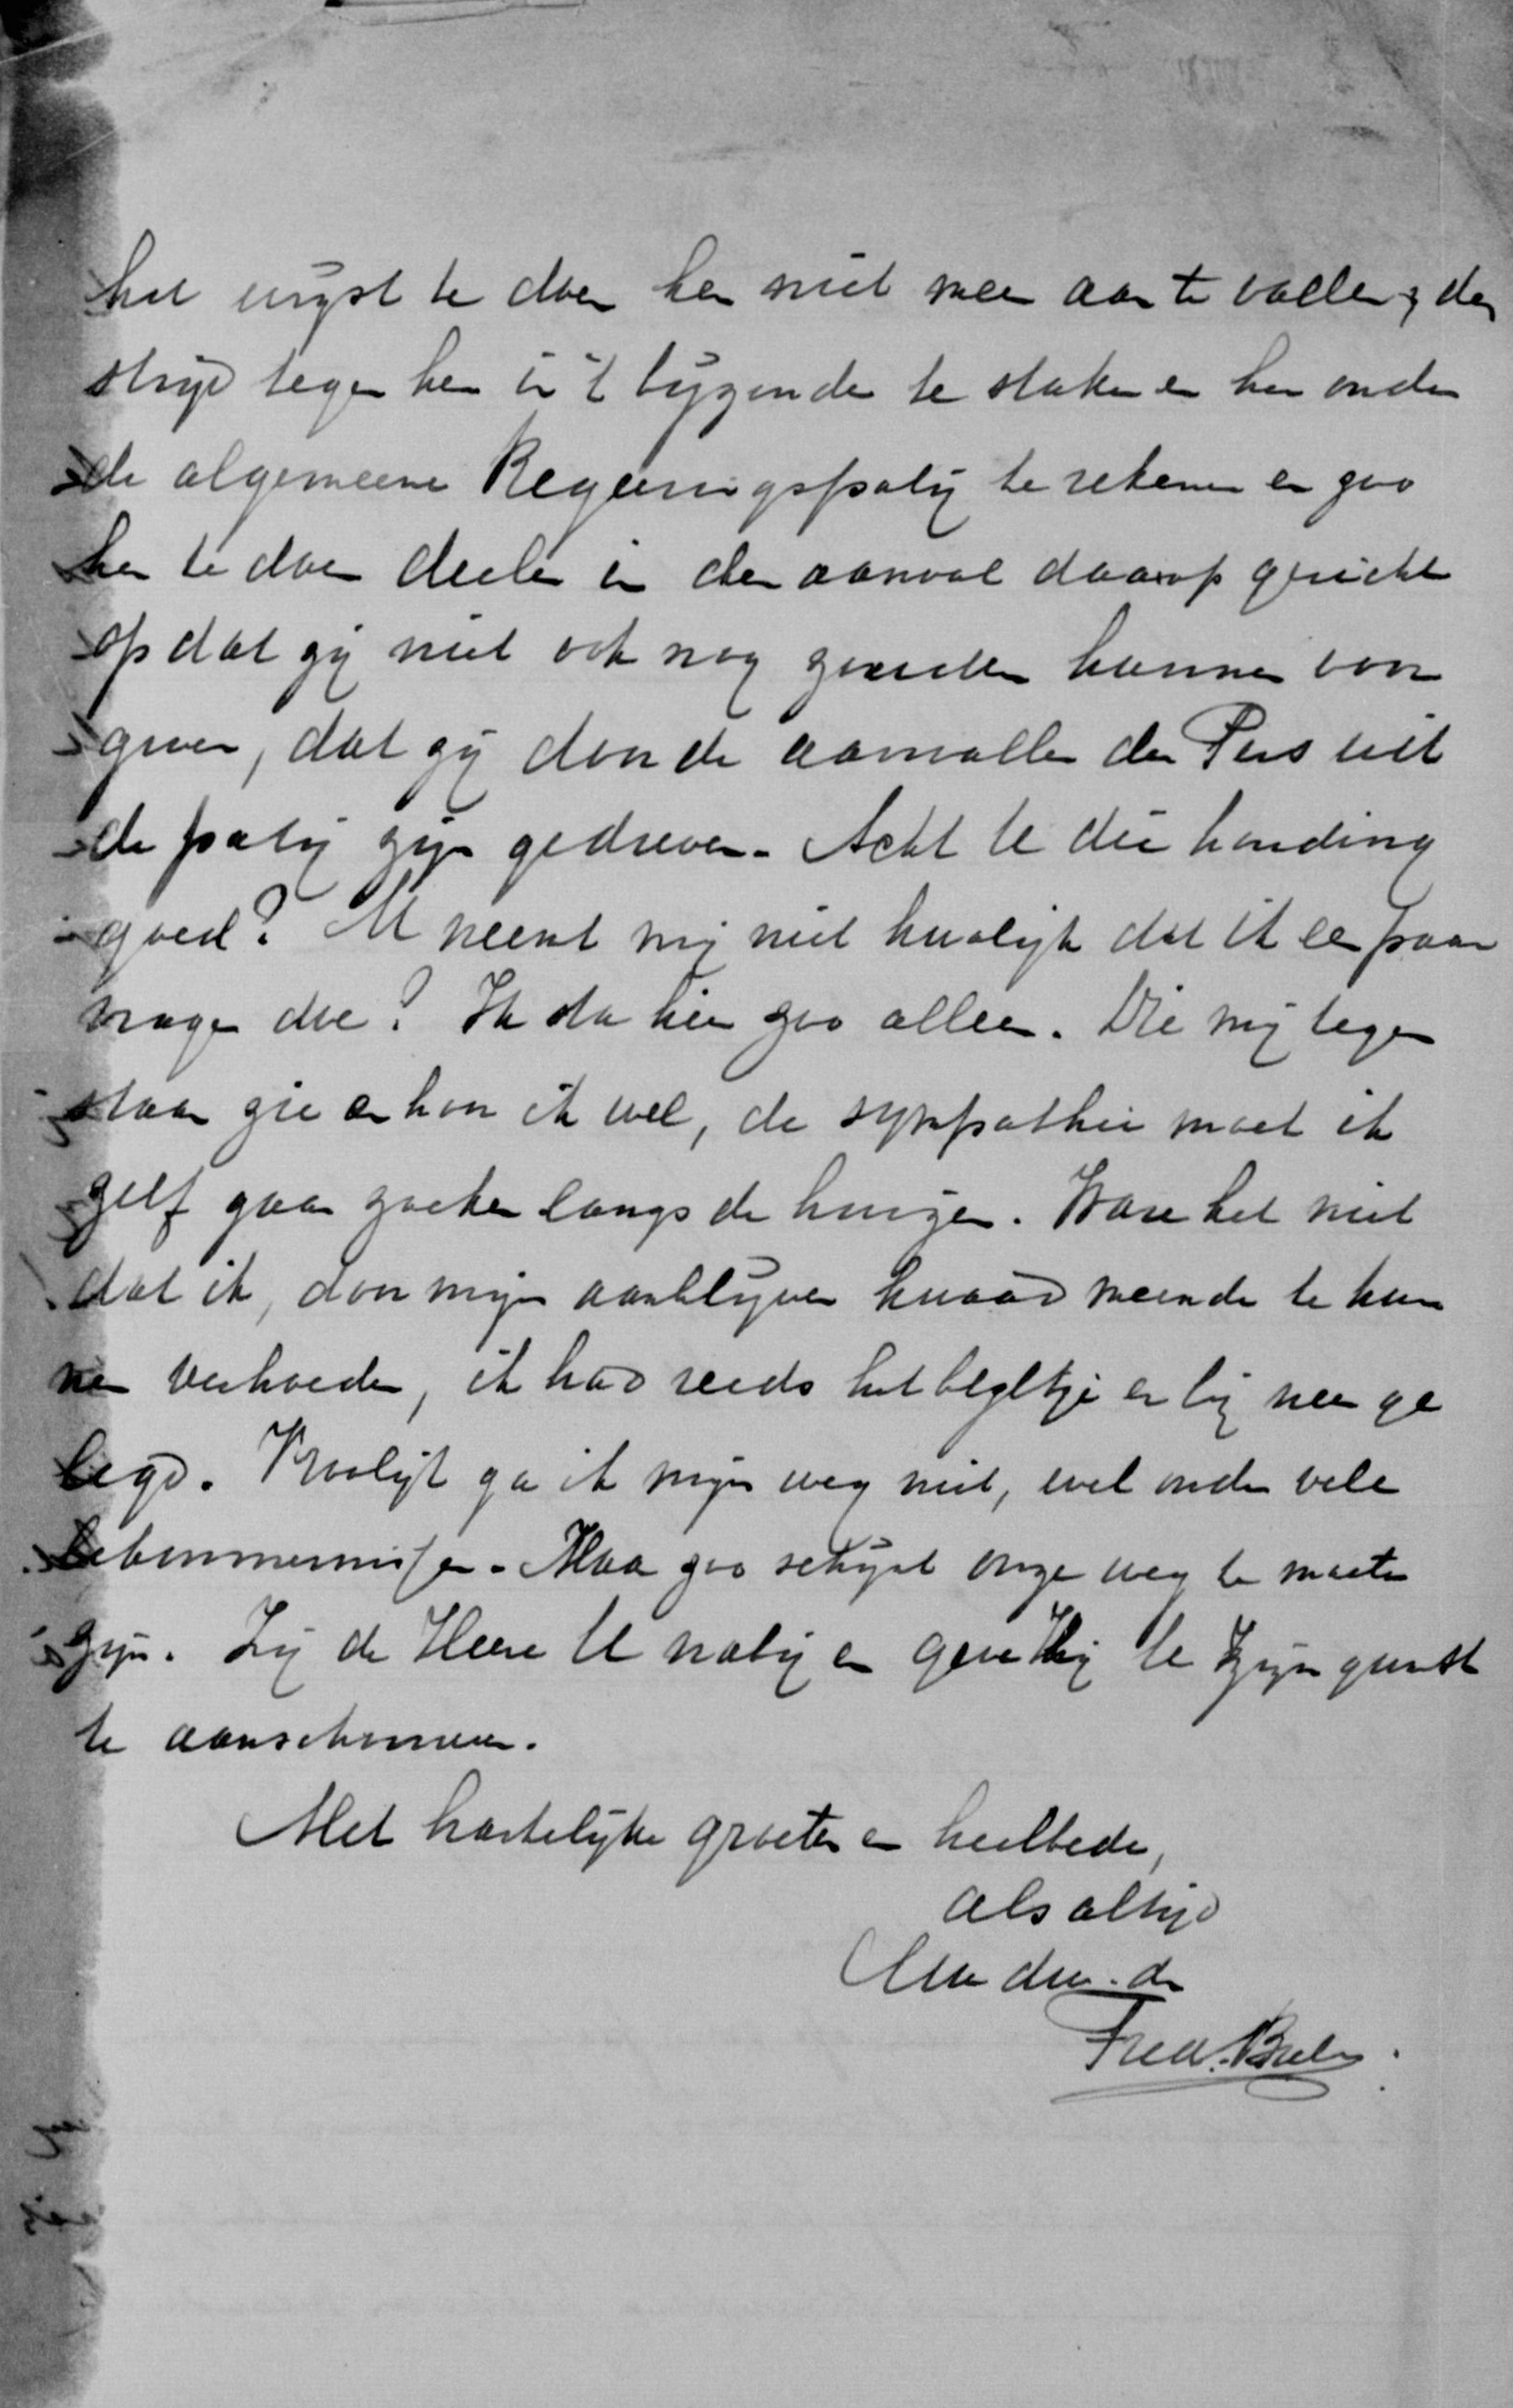 het wijst te doen hen niet meer aan te vallen, den
strijd tegen hen in 't bijzonder te staken en hen onder
de algemeene Regeeringspartij te rekenen en zoo
hen te doen deelen in den aanval daarop gericht
opdat zij niet ook nog zouden kunnen voor
geven, dat zij door de aanvallen der Pers uit
de partij zijn gedreven. Acht U die houding
goed? U neemt mij niet kwalijk dat ik een paar
vragen doe? Ik sta hier zoo alleen. Die mij tegen
staan zie en hoor ik wel, de sympathie moet ik
zelf gaan zoeken langs de huizen. Ware het niet
dat ik, door mijn aanblijven kwaad meende te kun
nen verhoeden, ik had reeds het bijltje er bij neer ge
legd. Vroolijk ga ik mijn weg niet, wel onder vele
bekommernissen. Maar zoo schijnt onze weg te moeten
zijn. Zij de Heere U nabij en geve Hij U Zijn gunst
te aanschouwen.
Met hartelijke groeten en heilbede,
als altijd
Uw dw. dr
Fred. Bul